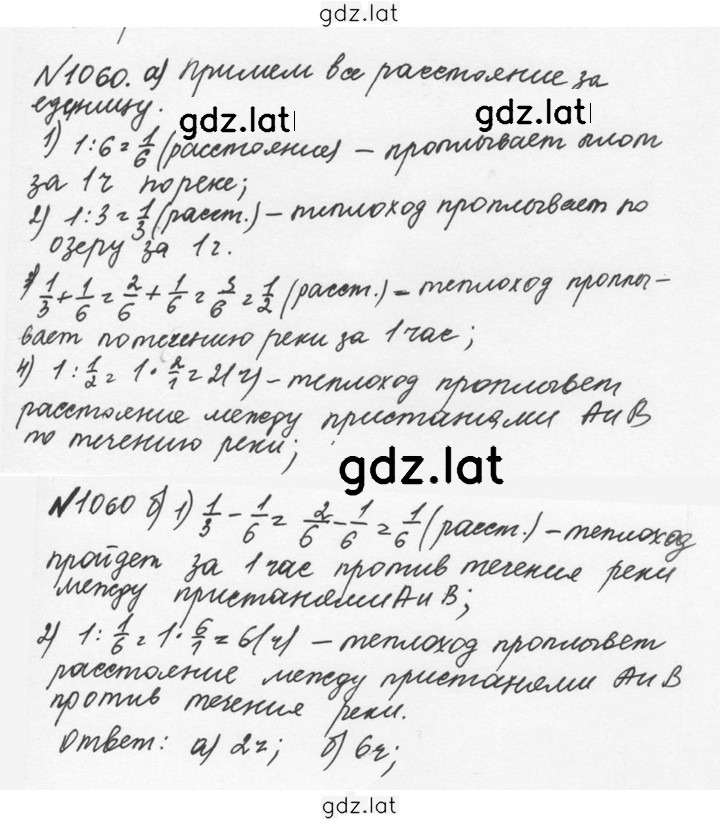 gdz.lat
№1060. а) Примем все расстояние за
еденицу.
gdz.lat
gdz.lat
1) 1:6=1/6 (расстояние) – проплывает плот
за 1ч по реке;
2) 1:3=1/3 (расст.) – теплоход проплывает по
озеру за 1ч.
3) 1/3+1/6=2/6+1/6=3/6=1/2 (расст.) – теплоход проплы-
вает по течению реки за 1 час;
4) 1:1/2=1·2/1=2(ч) – теплоход проплывет
расстояние между пристанями А и В
по течению реки;
gdz.lat
№1060 б) 1) 1/3-1/6=2/6-1/6=1/6 (расст.) – теплоход
пройдет за 1 час против течения реки
между пристанями А и В;
2) 1:1/6=1·6/1=6(ч) – теплоход проплывет
расстояние между пристанями А и В
против течения реки.
Ответ: а) 2ч; б) 6ч;
gdz.lat